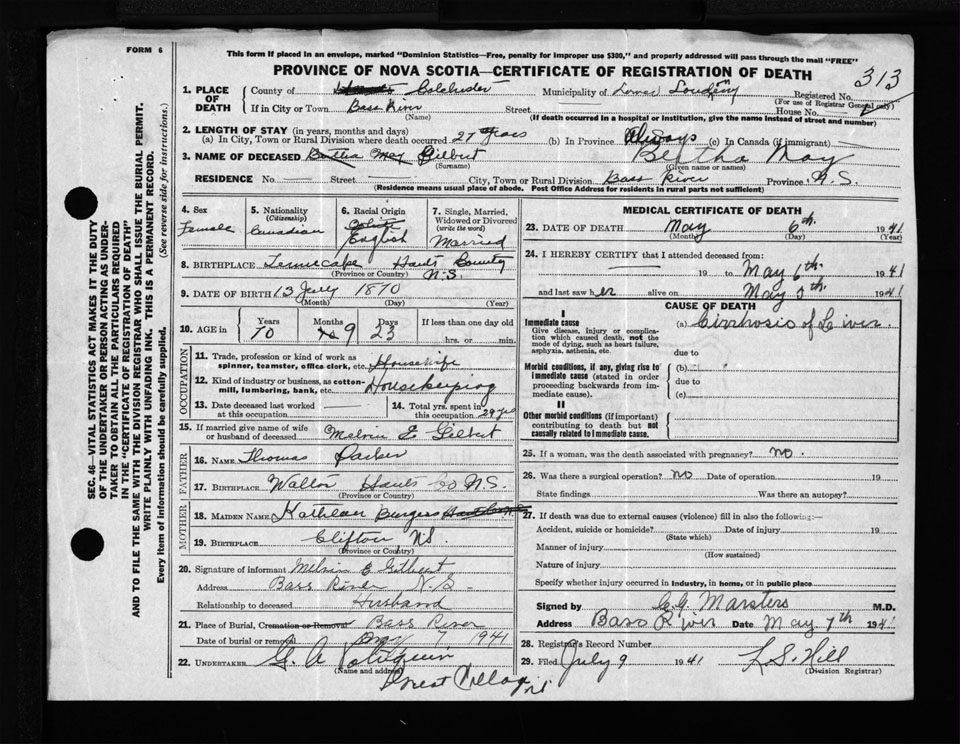 FORM 6
This form if placed in an envelope, marked "Dominion Statistics—Free, penalty for improper use $300," and properly addressed will pass through the mail "FREE"
PROVINCE OF NOVA SCOTIA—CERTIFICATE OF REGISTRATION OF DEATH
313
1. PLACE OF DEATH
County of Colchester Municipality of Lower Registered No.
(For use of Registrar General only)
If in City or Town Bass River Street House No.
(Name) (If death occurred in a hospital or institution, give the name instead of street and number)
2. LENGTH OF STAY (in years, months and days)
(a) In City, Town or Rural Division where death occurred 27 years (b) In Province Always (c) In Canada (if immigrant)
3. NAME OF DECEASED Bertha May Gilbert Bertha May
(Surname) (Given name or names)
RESIDENCE No. — Street — City, Town or Rural Division Bass River Province N.S.
(Residence means usual place of abode. Post Office Address for residents in rural parts not sufficient)
SEC. 46—VITAL STATISTICS ACT MAKES IT THE DUTY
OF THE UNDERTAKER OR PERSON ACTING AS UNDER-
TAKER TO OBTAIN ALL THE PARTICULARS REQUIRED
IN THE "CERTIFICATE OF REGISTRATION OF DEATH"
AND TO FILE THE SAME WITH THE DIVISION REGISTRAR WHO SHALL ISSUE THE BURIAL PERMIT.
WRITE PLAINLY WITH UNFADING INK. THIS IS A PERMANENT RECORD.
Every item of information should be carefully supplied. (See reverse side for instructions.)
4. Sex
Female
5. Nationality
(Citizenship)
Canadian
6. Racial Origin
White
English
7. Single, Married,
Widowed or Divorced
(write the word)
Married
8. BIRTHPLACE Tennecape Hants County
(Province or Country) N.S.
9. DATE OF BIRTH 13 July 1870
(Month) (Day) (Year)
10. AGE in
Years 70 Months 9 Days 23
If less than one day old
hrs. or min.
OCCUPATION
11. Trade, profession or kind of work as
spinner, teamster, office clerk, etc. Housewife
12. Kind of industry or business, as cotton-
mill, lumbering, bank, etc. Housekeeping
13. Date deceased last worked
at this occupation —
14. Total yrs. spent in
this occupation 29 yrs
15. If married give name of wife
or husband of deceased Melvin E Gilbert
FATHER
16. NAME Thomas Parker
17. BIRTHPLACE Walton Hants Co N.S.
(Province or Country)
MOTHER
18. MAIDEN NAME Kathleen Burgess
19. BIRTHPLACE Clifton NS
(Province or Country)
20. Signature of informant Melvin E Gilbert
Address Bass River N.S.
Relationship to deceased Husband
21. Place of Burial, Cremation or Removal Bass River
Date of burial or removal May 7 1941
22. UNDERTAKER G. A
(Name and address)
Great Village NS
MEDICAL CERTIFICATE OF DEATH
23. DATE OF DEATH May 6th 1941
(Month) (Day) (Year)
24. I HEREBY CERTIFY that I attended deceased from:
— 19 to May 6th 1941
and last saw her alive on May 5th 1941
CAUSE OF DEATH
I
Immediate cause
Give disease, injury or complica-
tion which caused death, not the
mode of dying, such as heart failure,
asphyxia, asthenia, etc.
(a) Cirrhosis of Liver.
due to
Morbid conditions, if any, giving rise to
immediate cause (stated in order
proceeding backwards from im-
mediate cause).
(b)
due to
(c)
II
Other morbid conditions (if important)
contributing to death but not
causally related to immediate cause.
25. If a woman, was the death associated with pregnancy? no.
26. Was there a surgical operation? no Date of operation 19
State findings Was there an autopsy?
27. If death was due to external causes (violence) fill in also the following:—
Accident, suicide or homicide? Date of injury 19
(State which)
Manner of injury
(How sustained)
Nature of injury
Specify whether injury occurred in industry, in home, or in public place
Signed by C.G. Marsters M.D.
Address Bass River Date May 7th 1941
28. Registrar's Record Number
29. Filed July 9 1941 L. S. Hill
(Division Registrar)